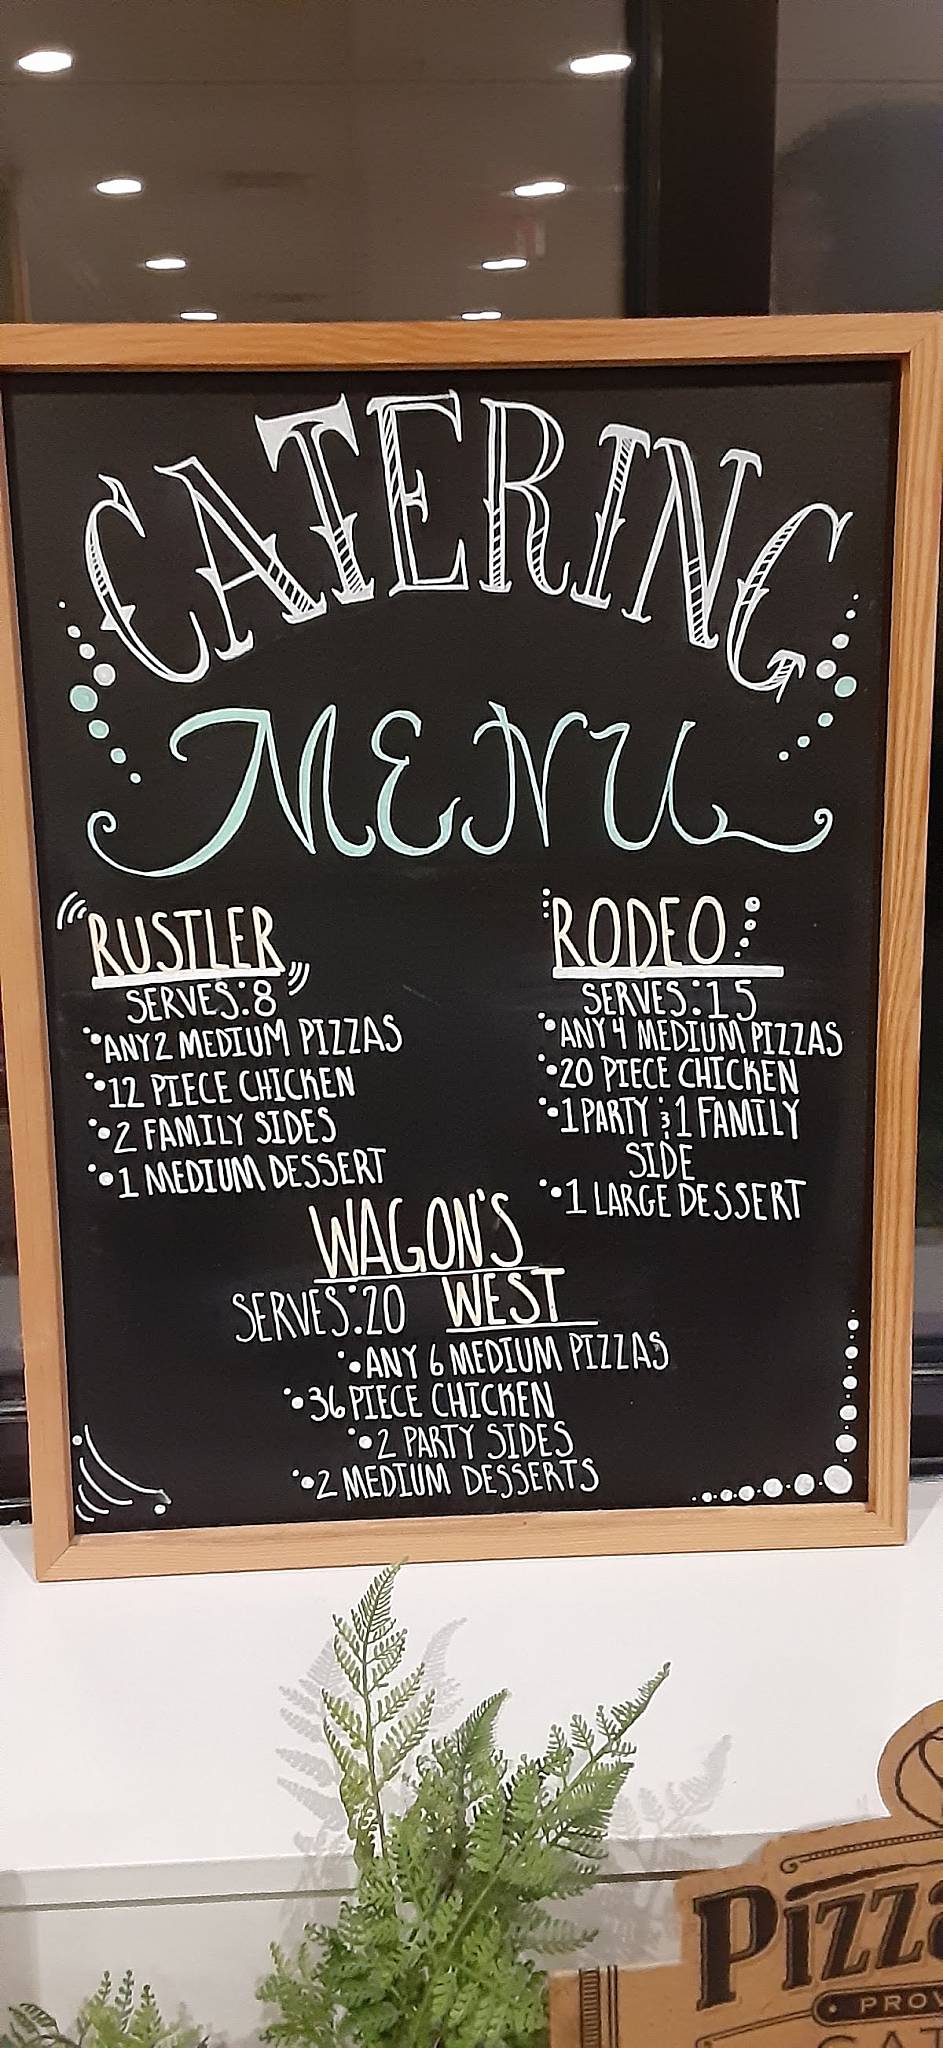 CATERING
MENU
RUSTLER
SERVES:8
•ANY 2 MEDIUM PIZZAS
•12 PIECE CHICKEN
•2 FAMILY SIDES
•1 MEDIUM DESSERT
RODEO
SERVES:15
•ANY 4 MEDIUM PIZZAS
•20 PIECE CHICKEN
•1 PARTY & 1 FAMILY
SIDE
•1 LARGE DESSERT
WAGON'S
WEST
SERVES:20
•ANY 6 MEDIUM PIZZAS
•36 PIECE CHICKEN
•2 PARTY SIDES
•2 MEDIUM DESSERTS
Pizza
PROV
CAT